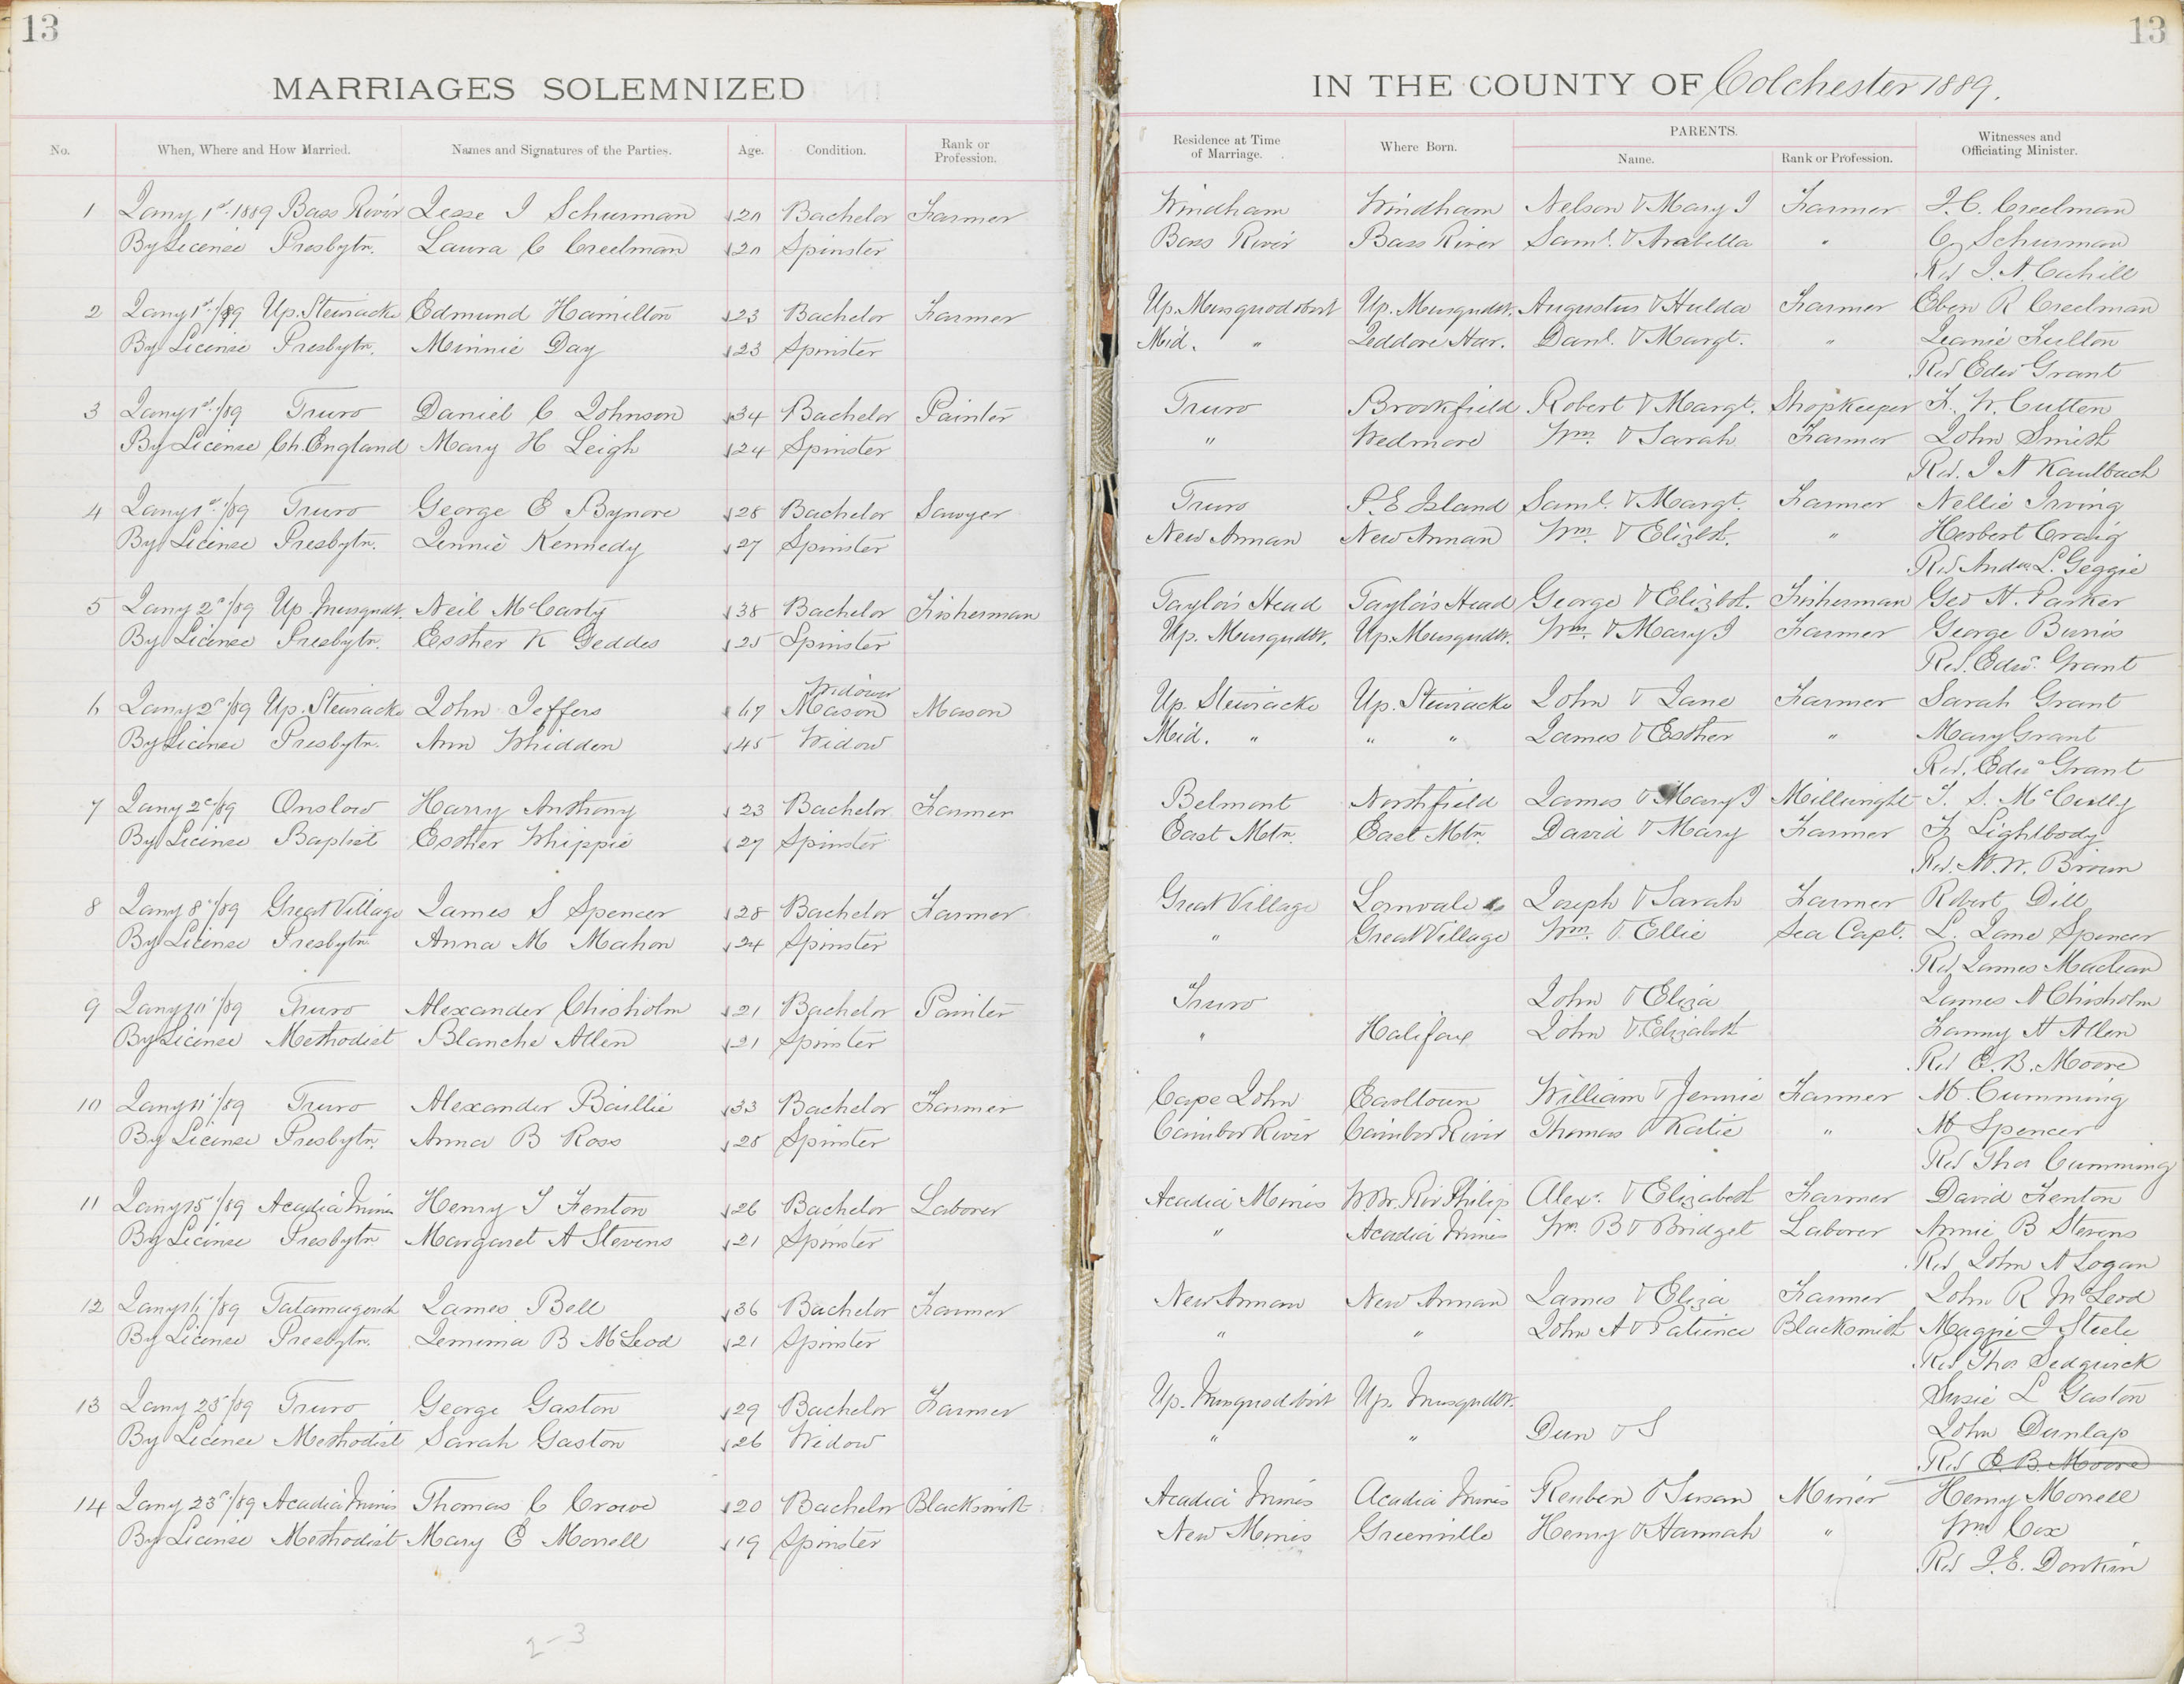 13 13
MARRIAGES SOLEMNIZED IN THE COUNTY OF Colchester 1889.
No. When, Where and How Married. Names and Signatures of the Parties. Age. Condition. Rank or Profession. Residence at Time of Marriage. Where Born. PARENTS. Name. Rank or Profession. Witnesses and Officiating Minister.
1 Jany 1st 1889 Bass River Jesse J Schurman 20 Bachelor Farmer Windham Windham Nelson & Mary J Farmer J. C. Creelman
By License Presbytn. Laura C Creelman 20 Spinster Bass River Bass River Saml. & Arabella " C Schurman
Rev J. A Cahill
2 Jany 1st/89 Up. Stewiacke Edmund Hamilton 23 Bachelor Farmer Up. Musquodobort Up. Musqudbt. Augustus & Hulda Farmer Eben R Creelman
By License Presbytn. Minnie Day 23 Spinster Mid. " Jeddore Har. Danl. & Margt. " Jeanie Fulton
Rev Edwd Grant
3 Jany 1st/89 Truro Daniel C Johnson 34 Bachelor Painter Truro Brookfield Robert & Margt. Shopkeeper F. W. Cutten
By License Ch. England Mary H Leigh 24 Spinster " Wedmore Wm. & Sarah Farmer John Smith
Rev. J A Kaulbach
4 Jany 1st/89 Truro George E Bynore 28 Bachelor Sawyer Truro P. E Island Saml. & Margt. Farmer Nellie Irving
By License Presbytn. Jennie Kennedy 27 Spinster New Annan New Annan Wm. & Elizbt. " Herbert Craig
Rev Andw L. Geggie
5 Jany 2d/89 Up. Musqudt. Neil McCarty 38 Bachelor Fisherman Taylor's Head Taylor's Head George & Elizbt. Fisherman Geo H. Parker
By License Presbytn. Esther K Geddes 25 Spinster Up. Musqudbt. Up. Musqudbt. Wm. & Mary J Farmer George Burris
Rev. Edwd. Grant
Widower
6 Jany 2d/89 Up. Stewiacke John Jeffers 67 Mason Mason Up. Stewiacke Up. Stewiacke John & Jane Farmer Sarah Grant
By License Presbytn. Ann Whidden 45 Widow Mid. " " " James & Esther " Mary Grant
Rev. Edwd Grant
7 Jany 2d/89 Onslow Harry Anthony 23 Bachelor Farmer Belmont Northfield James & Mary J Millwright T. S. McCully
By License Baptist Esther Whippie 27 Spinster East Mtn. East Mtn. David & Mary Farmer F Lightbody
Rev. M. W. Brown
8 Jany 8/89 Great Village James S Spencer 28 Bachelor Farmer Great Village Lornvale Joseph & Sarah Farmer Robert Dill
By License Presbytn Anna M Mahon 24 Spinster " Great Village Wm. & Ellie Sea Capt. L. Jane Spencer
Rev James Maclean
9 Jany 10/89 Truro Alexander Chisholm 21 Bachelor Painter Truro John & Eliza James A Chisholm
By License Methodist Blanche Allen 21 Spinster " Halifax John & Elizabeth Fanny H Allen
Rev E. B. Moore
10 Jany 11/89 Truro Alexander Baillie 33 Bachelor Farmer Cape John Earltown William & Jennie Farmer M. Cumming
By License Presbytn. Anna B Ross 28 Spinster Caribor River Caribor River Thomas & Katie " M Spencer
Rev Thos Cumming
11 Jany 15/89 Acadia Mines Henry T Fenton 26 Bachelor Laborer Acadia Mines W. Br. Riv Philip Alex. & Elizabeth Farmer David Fenton
By License Presbytn Margaret A Stevens 21 Spinster " Acadia Mines Wm. B & Bridget Laborer Annie B Stevens
Rev John A Logan
12 Jany 16/89 Tatamagouch James Bell 36 Bachelor Farmer New Annan New Annan James & Eliza Farmer John R McLeod
By License Presbytn. Jemima B McLeod 21 Spinster " " John A & Patience Blacksmith Maggie J Steele
Rev Thos Sedgwick
13 Jany 23/89 Truro George Gaston 29 Bachelor Farmer Up. Musquodobort Up. Musqudbt. Susie L Gaston
By License Methodist Sarah Gaston 26 Widow " " Dun & S John Dunlap
Rev E. B. Moore
14 Jany 23d/89 Acadia Mines Thomas C Crowe 20 Bachelor Blacksmith Acadia Mines Acadia Mines Reuben & Susan Miner Henry Morrell
By License Methodist Mary E Morrell 19 Spinster New Mines Greenville Henry & Hannah " Wm Cox
Rev J. E. Donkin
2-3